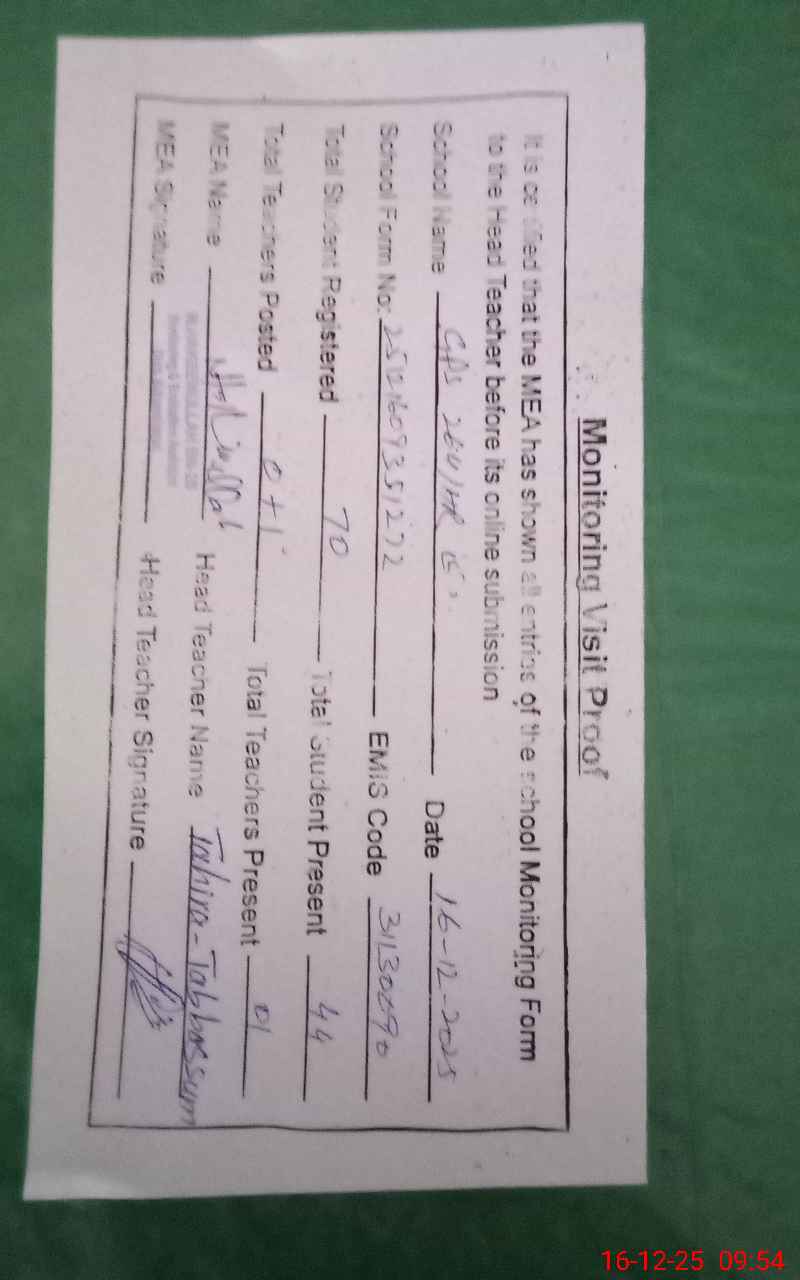 Monitoring Visit Proof
It is certified that the MEA has shown all entries of the school Monitoring Form
to the Head Teacher before its online submission
School Name GPS 264/HR Date 16-12-2025
School Form No: EMIS Code 31130690
Total Student Registered 70 Total Student Present 44
Total Teachers Posted 0+1 Total Teachers Present 01
MEA Name Head Teacher Name Tahira-Tabbassum
MEA Signature Head Teacher Signature
16-12-25 09:54